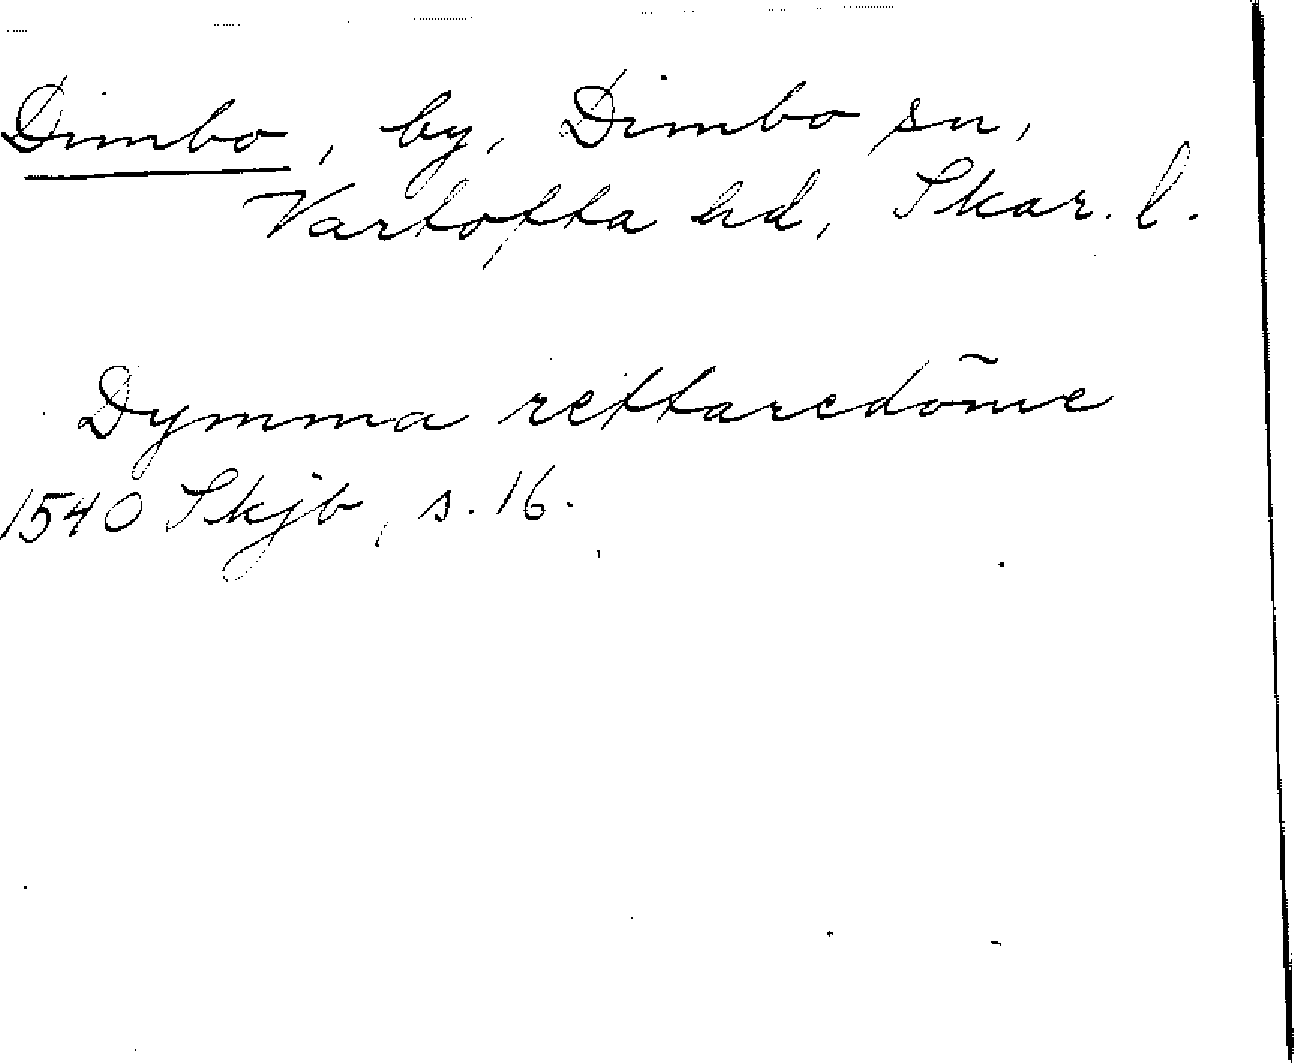 Dimbo, by, Dimbo sn,
Vartofta hd, Skar. l.
Dymma rettaredöme
1540 Skjb, s. 16.